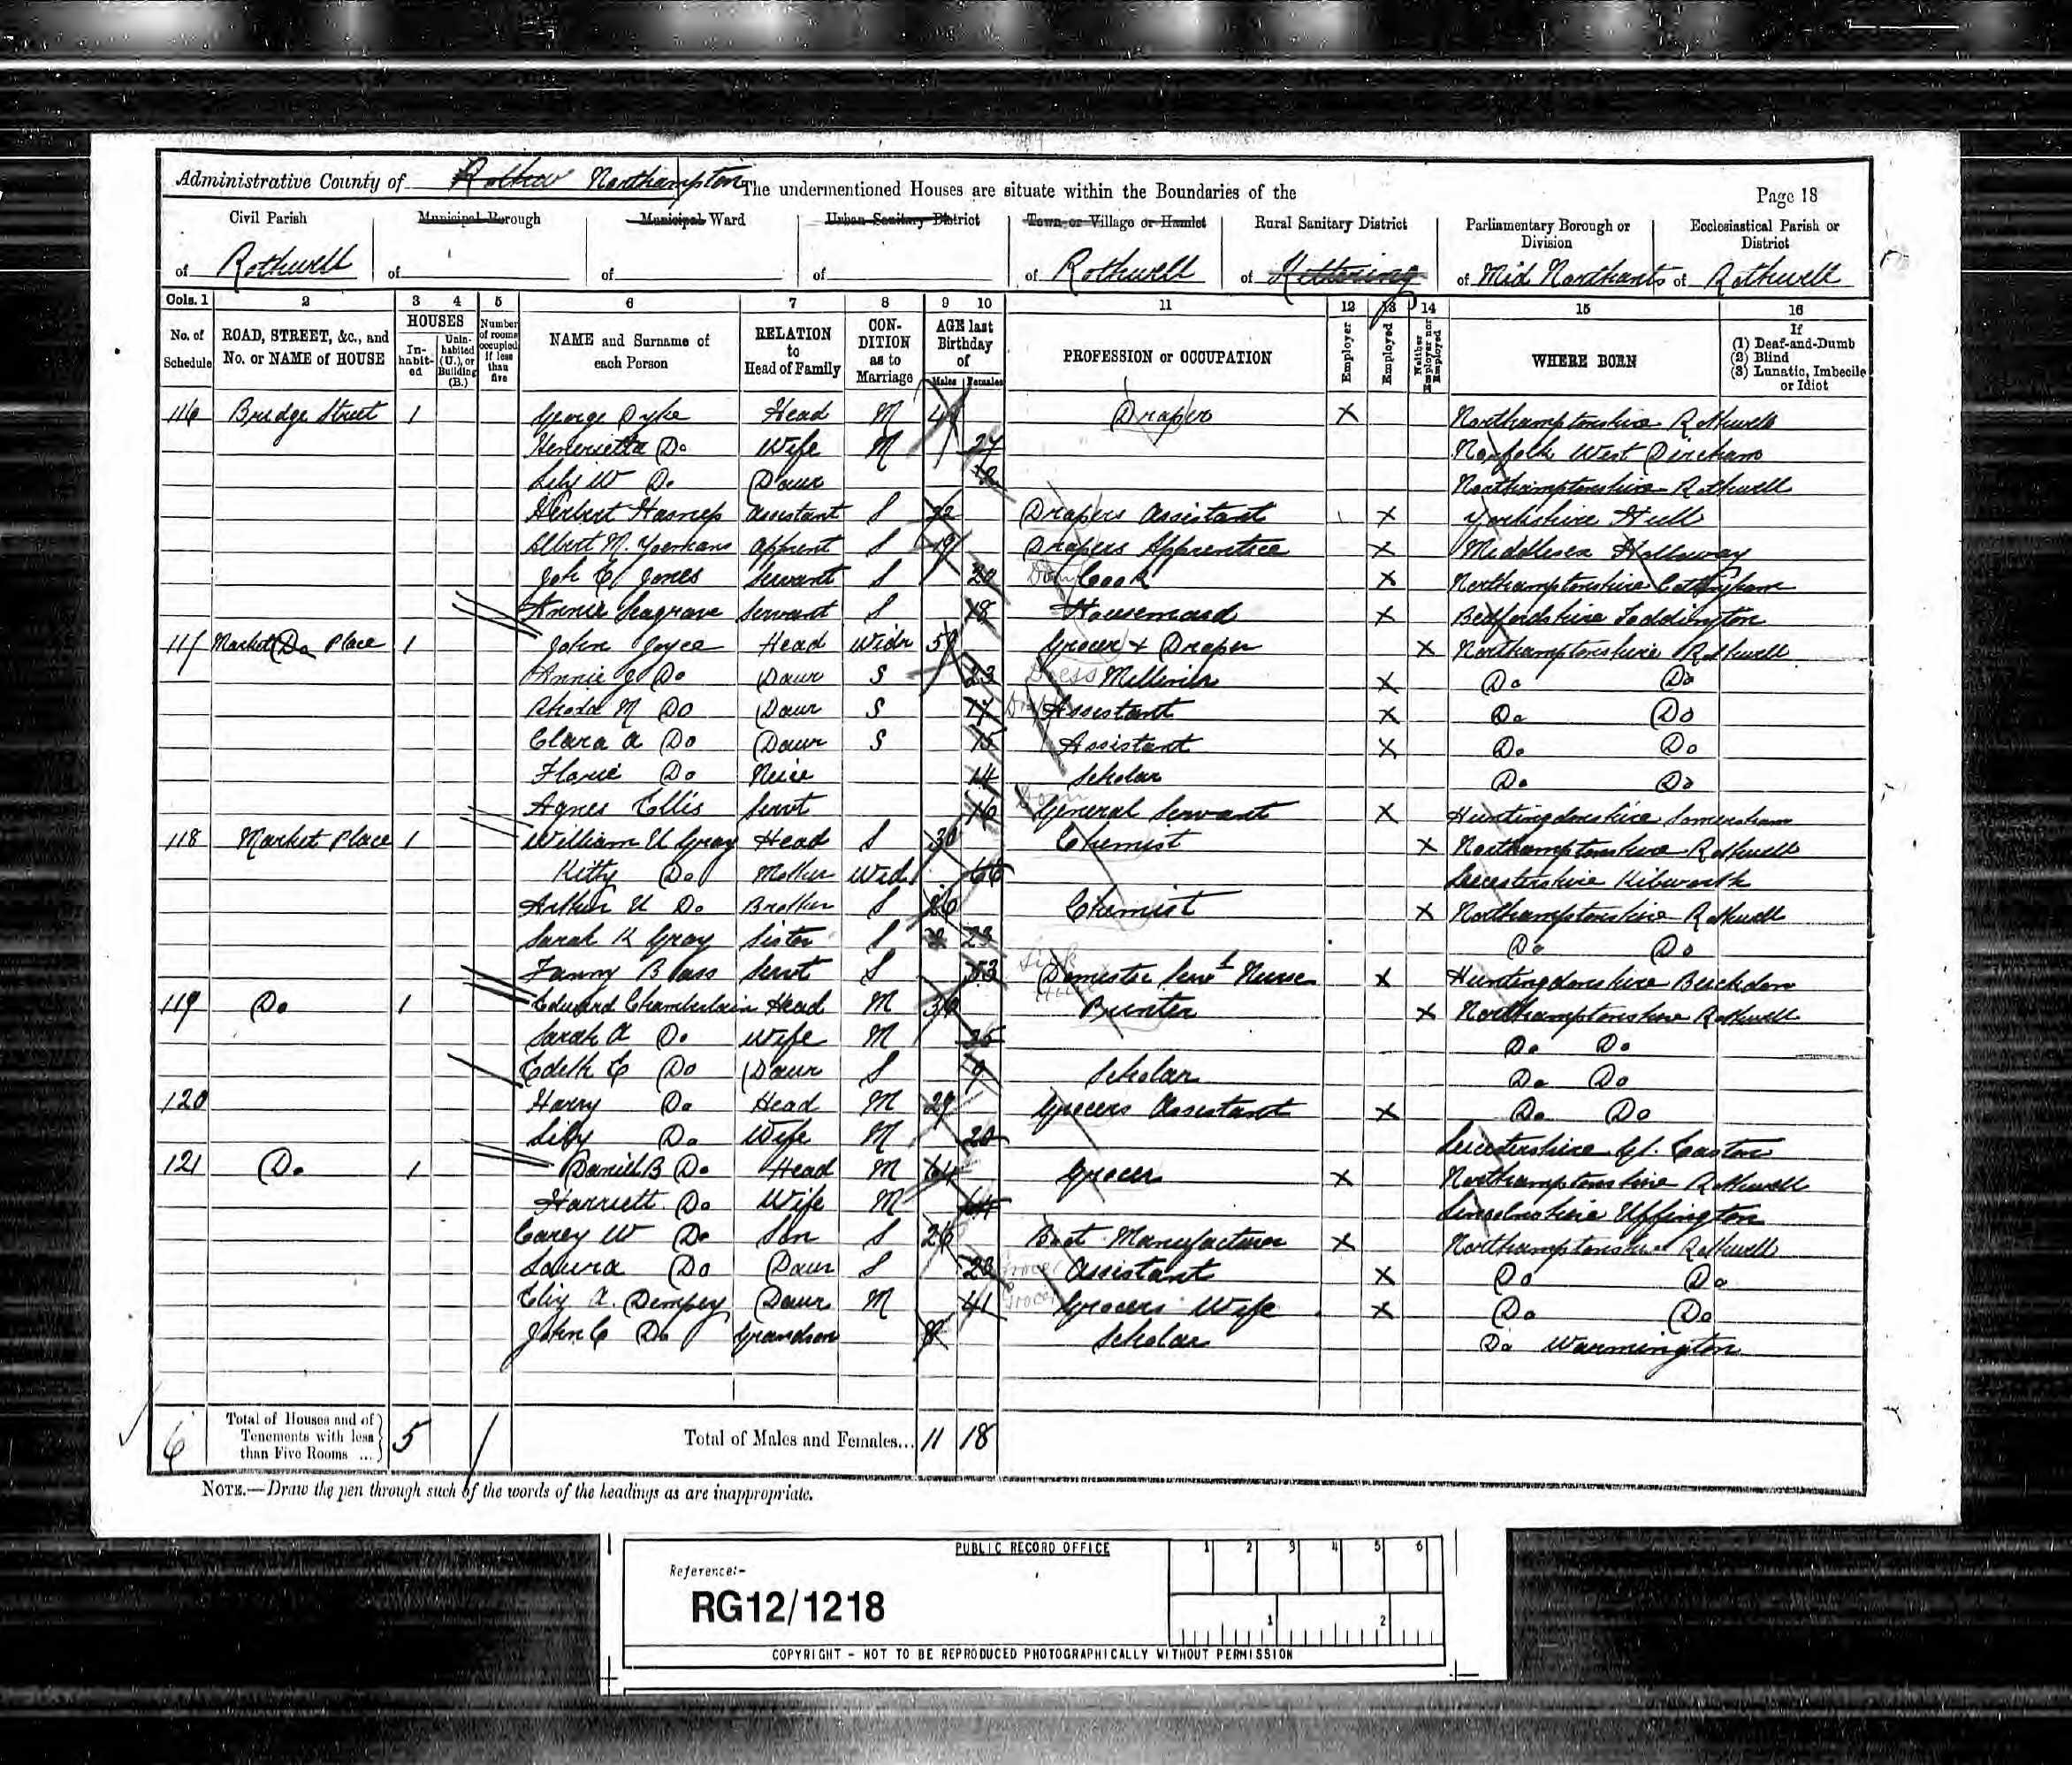 Administrative County of Northampton The undermentioned Houses are situate within the Boundaries of the Page 18
Civil Parish Municipal Borough Municipal Ward Urban Sanitary District Town or Village or Hamlet Rural Sanitary District Parliamentary Borough or Division Ecclesiastical Parish or District
of Rothwell of of of of Rothwell of Kettering of Mid Northants of Rothwell
Cols. 1 2 3 4 5 6 7 8 9 10 11 12 13 14 15 16
No. of Schedule ROAD, STREET, &c., and No. or NAME of HOUSE HOUSES Inhabited Uninhabited (U.), or Building (B.) Number of rooms occupied if less than five NAME and Surname of each Person RELATION to Head of Family CONDITION as to Marriage AGE last Birthday of Males Females PROFESSION or OCCUPATION Employer Employed Neither Employer nor Employed WHERE BORN If (1) Deaf-and-Dumb (2) Blind (3) Lunatic, Imbecile or Idiot
116 Bridge Street 1 George Dyke Head M Draper X Northamptonshire Rothwell
Henrietta Do Wife M 27 Norfolk West Direham
W Do Daur Northamptonshire Rothwell
Herbert Assistant S 22 Drapers Assistant X Yorkshire Hull
Albert M. Yoemans Apprent S 19 Drapers Apprentice X Middlesex Holloway
C Jones Servant S 20 Cook X Northamptonshire Cottingham
Annie Seagrave Servant S 18 Housemaid X Bedfordshire Toddington
117 Market Do Place 1 John Joyce Head Widr Grocer & Draper X Northamptonshire Rothwell
Annie J Do Daur S 23 Dress Milliner X Do Do
Rhoda M Do Daur S 17 Assistant X Do Do
Clara A Do Daur S 15 Assistant X Do Do
Florie Do Neice 14 Scholar Do Do
Agnes Ellis Servt 16 Dom General Servant X Huntingdonshire Somersham
118 Market Place 1 William U Gray Head S 30 Chemist X Northamptonshire Rothwell
Kitty Do Mother Wid 66 Leicestershire Kibworth
Arthur U Do Brother S 26 Chemist X Northamptonshire Rothwell
Sarah K Gray Sister S 23 Do Do
Fanny Bass Servt S 53 Sick Domestic Servt Nurse X Huntingdonshire Buckden
119 Do 1 Edward Chamberlain Head M 36 Printer X Northamptonshire Rothwell
Sarah A Do Wife M 35 Do Do
Edith E Do Daur S 9 Scholar Do Do
120 Harry Do Head M 29 Grocers Assistant X Do Do
Lily Do Wife M 20 Leicestershire Gt. Easton
121 Do 1 Daniel B Do Head M 64 Grocer X Northamptonshire Rothwell
Harriett Do Wife M 64 Lincolnshire Uffington
Carey W Do Son S 26 Boot Manufacturer X Northamptonshire Rothwell
Laura Do Daur S 23 Grocer Assistant X Do Do
Eliz A. Dempsy Daur M 41 Grocer Grocers Wife X Do Do
John C Do Grandson Scholar Do Warmington
6 Total of Houses and of Tenements with less than Five Rooms ... 5 1 Total of Males and Females... 11 18
NOTE.—Draw the pen through such of the words of the headings as are inappropriate.
PUBLIC RECORD OFFICE 1 2 3 4 5 6
Reference:-
RG12/1218
1 2
COPYRIGHT - NOT TO BE REPRODUCED PHOTOGRAPHICALLY WITHOUT PERMISSION